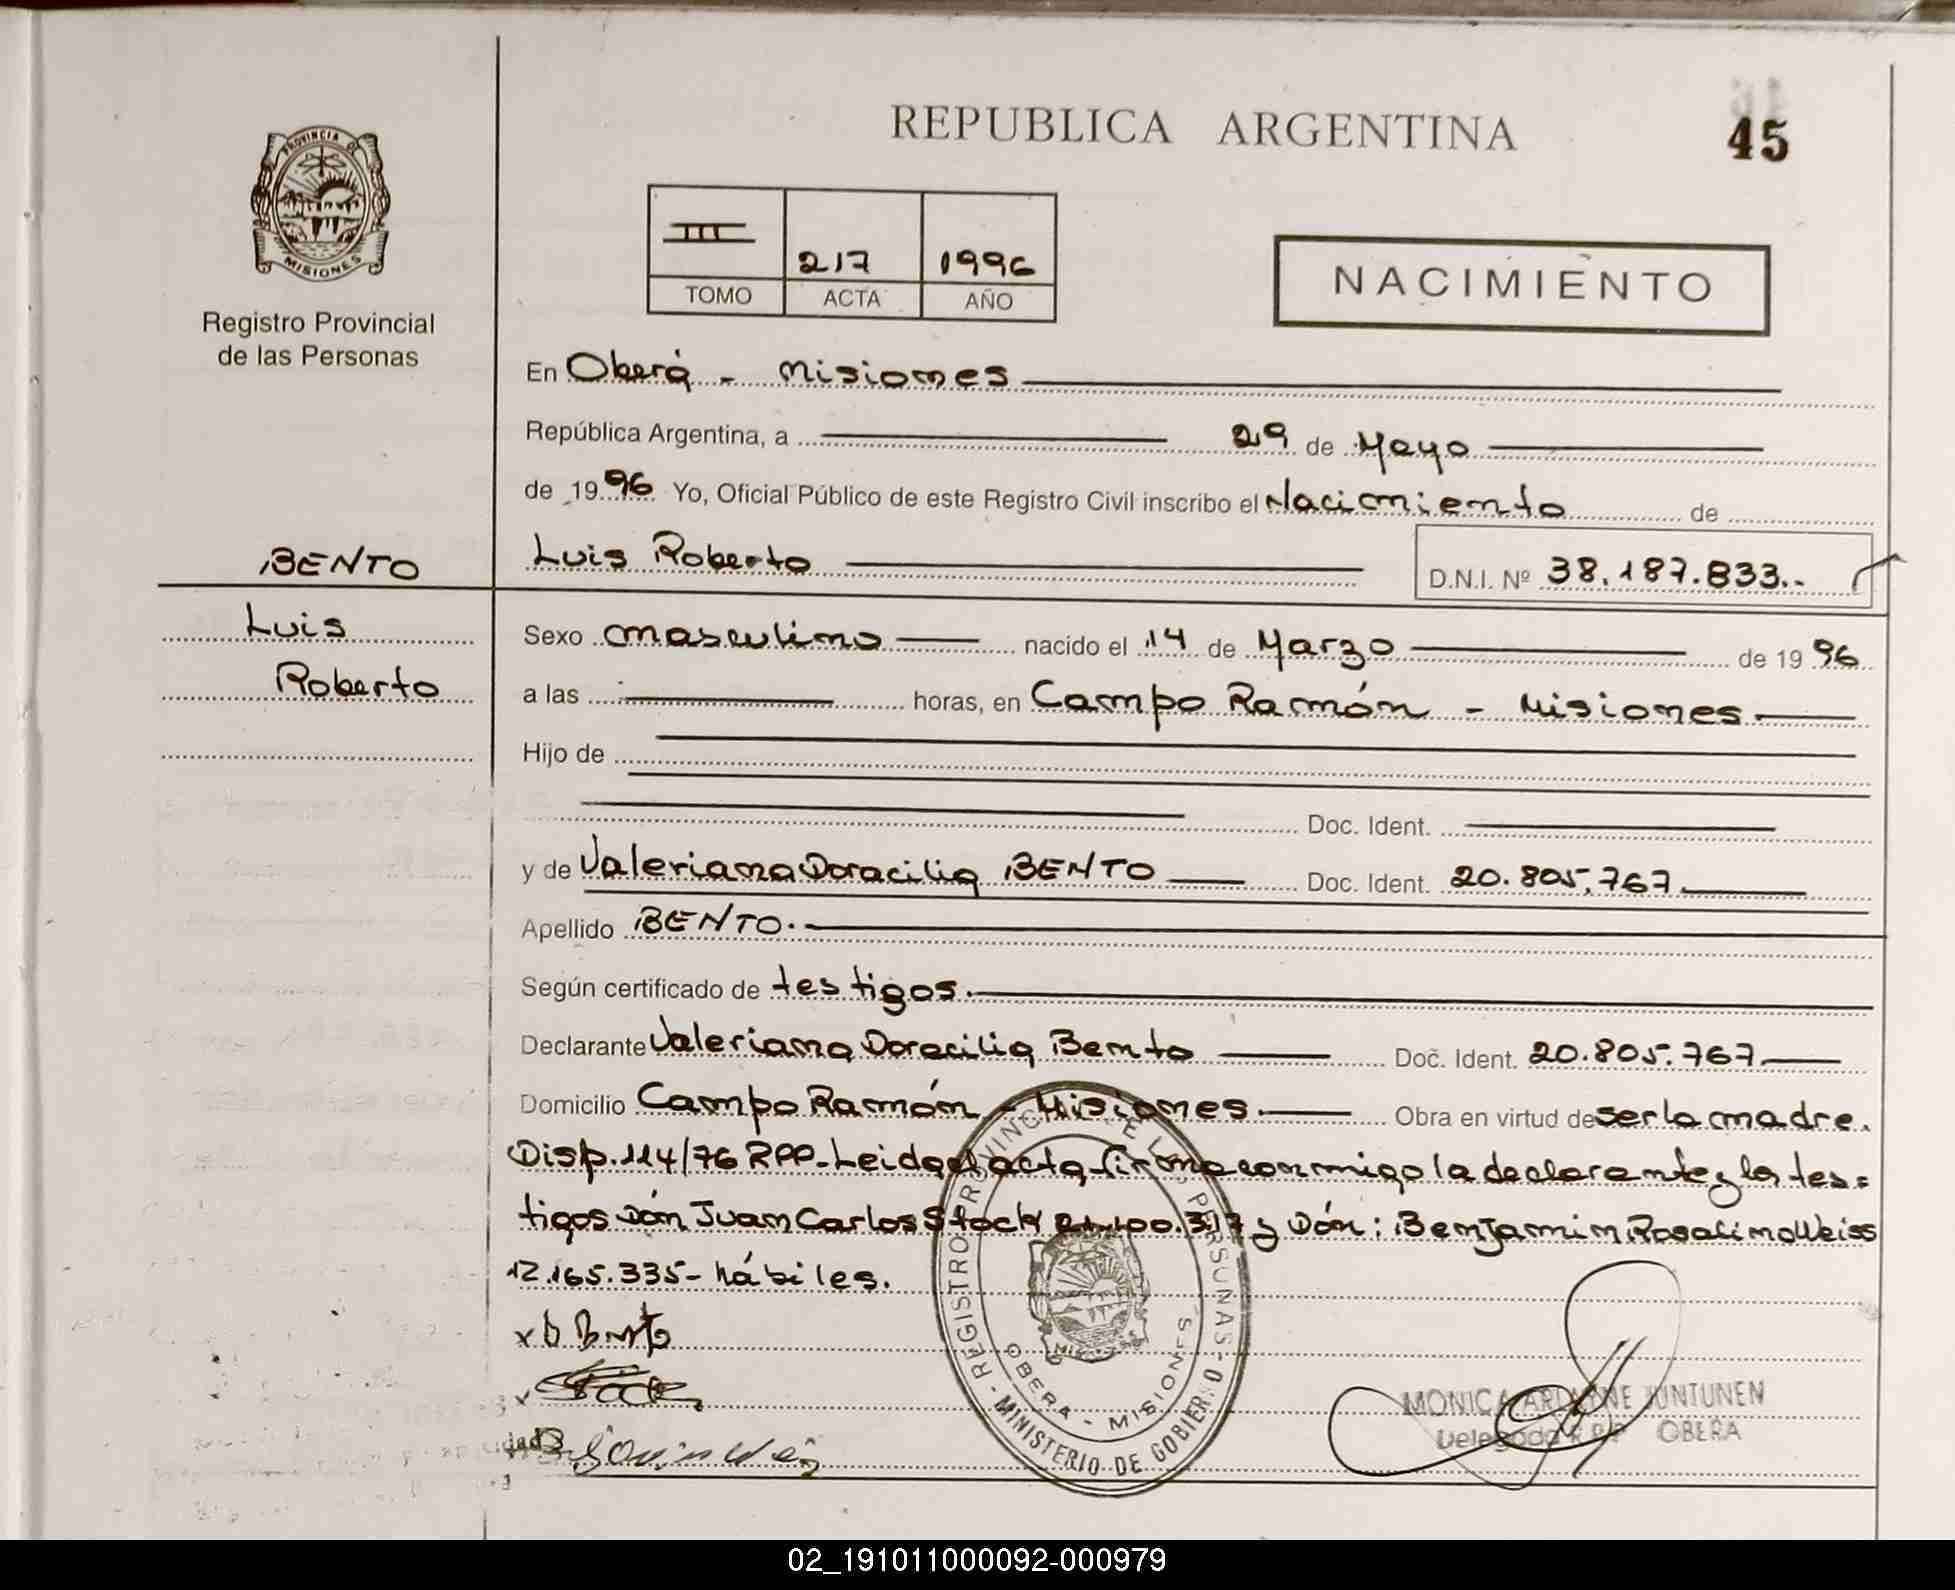 REPUBLICA ARGENTINA
45
PROVINCIA DE
MISIONES
Registro Provincial
de las Personas
III 217 1996
TOMO ACTA AÑO
NACIMIENTO
En Oberá - Misiones
República Argentina, a 29 de Mayo
de 1996 Yo, Oficial Público de este Registro Civil inscribo el Nacimiento de
BENTO
Luis Roberto D.N.I. Nº 38.187.833.-
Luis
Roberto
Sexo masculino nacido el 14 de Marzo de 1996
a las horas, en Campo Ramón - Misiones
Hijo de
Doc. Ident.
y de Valeriana Doracilia BENTO Doc. Ident. 20.805.767.
Apellido BENTO.
Según certificado de testigos.
Declarante Valeriana Doracilia Bento Doc. Ident. 20.805.767
Domicilio Campo Ramón - Misiones. Obra en virtud de ser la madre.
Disp. 114/76 RPP - Leida el acta firma conmigo la declarante y los tes=
tigos Dón Juan Carlos Stock 21.100.317 y Dón: Benjamin Rosalino Weiss
12.165.335 - hábiles.
x D Bento
x Stock
REGISTRO PROVINCIAL DE LAS PERSONAS
OBERA - MISIONES
MINISTERIO DE GOBIERNO
MONICA ARIANNE JUNTUNEN
Delegada R.P.P OBERA
02_191011000092-000979